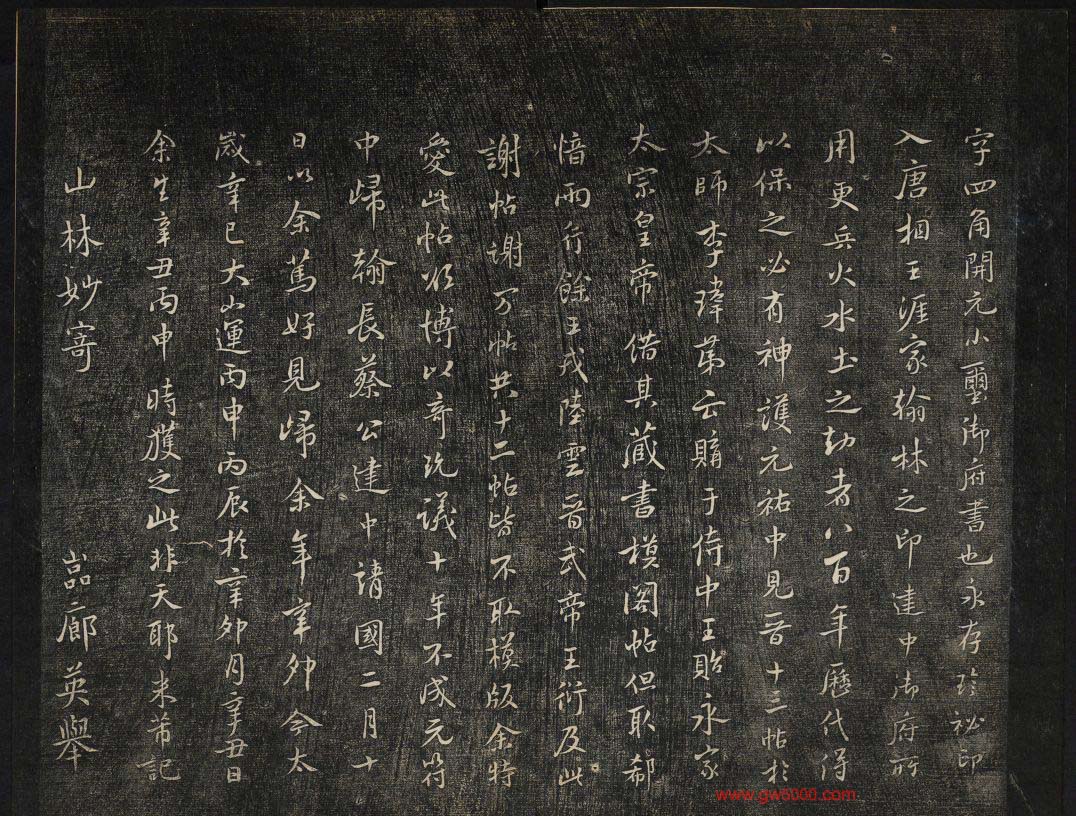 字四角開元小璽御府書也永存珍祕印
入唐相王涯家翰林之印建中御府所
用更兵火水土之劫者八百年歷代得
以保之必有神護元祐中見晉十三帖於
太師李瑋第云購于侍中王貽永家
太宗皇帝借其藏書模閣帖但取郗
愔兩行餘王戎陸雲晉武帝王衍及此
謝帖謝万帖共十二帖皆不取模版余特
愛此帖欲博以奇玩議十年不成元符
中歸翰長蔡公建中靖國二月十
日以余篤好見歸余年辛卯今太
歲辛巳大小運丙申丙辰於辛卯月辛丑日
余生辛丑丙申時獲之此非天耶米芾記
山林妙寄 喦廊英舉
www.gw5000.com